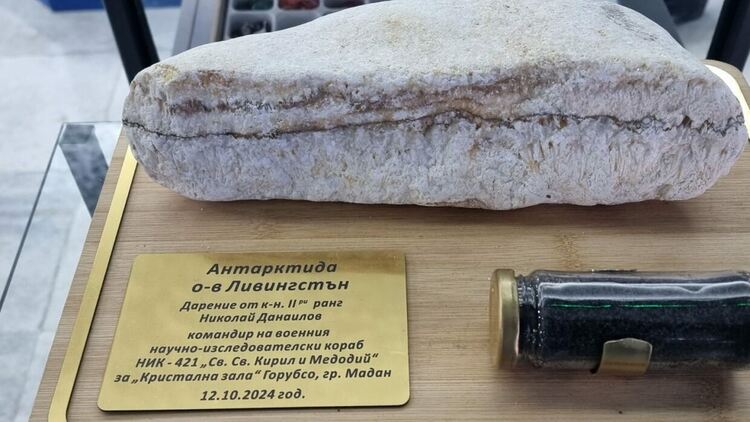 Антарктида
о-в Ливингстън
Дарение от к-н. II ри ранг
Николай Данаилов
командир на военния
научно-изследователски кораб
НИК - 421 „Св. Св. Кирил и Медодий“
за „Кристална зала“ Горубсо, гр. Мадан
12.10.2024 год.